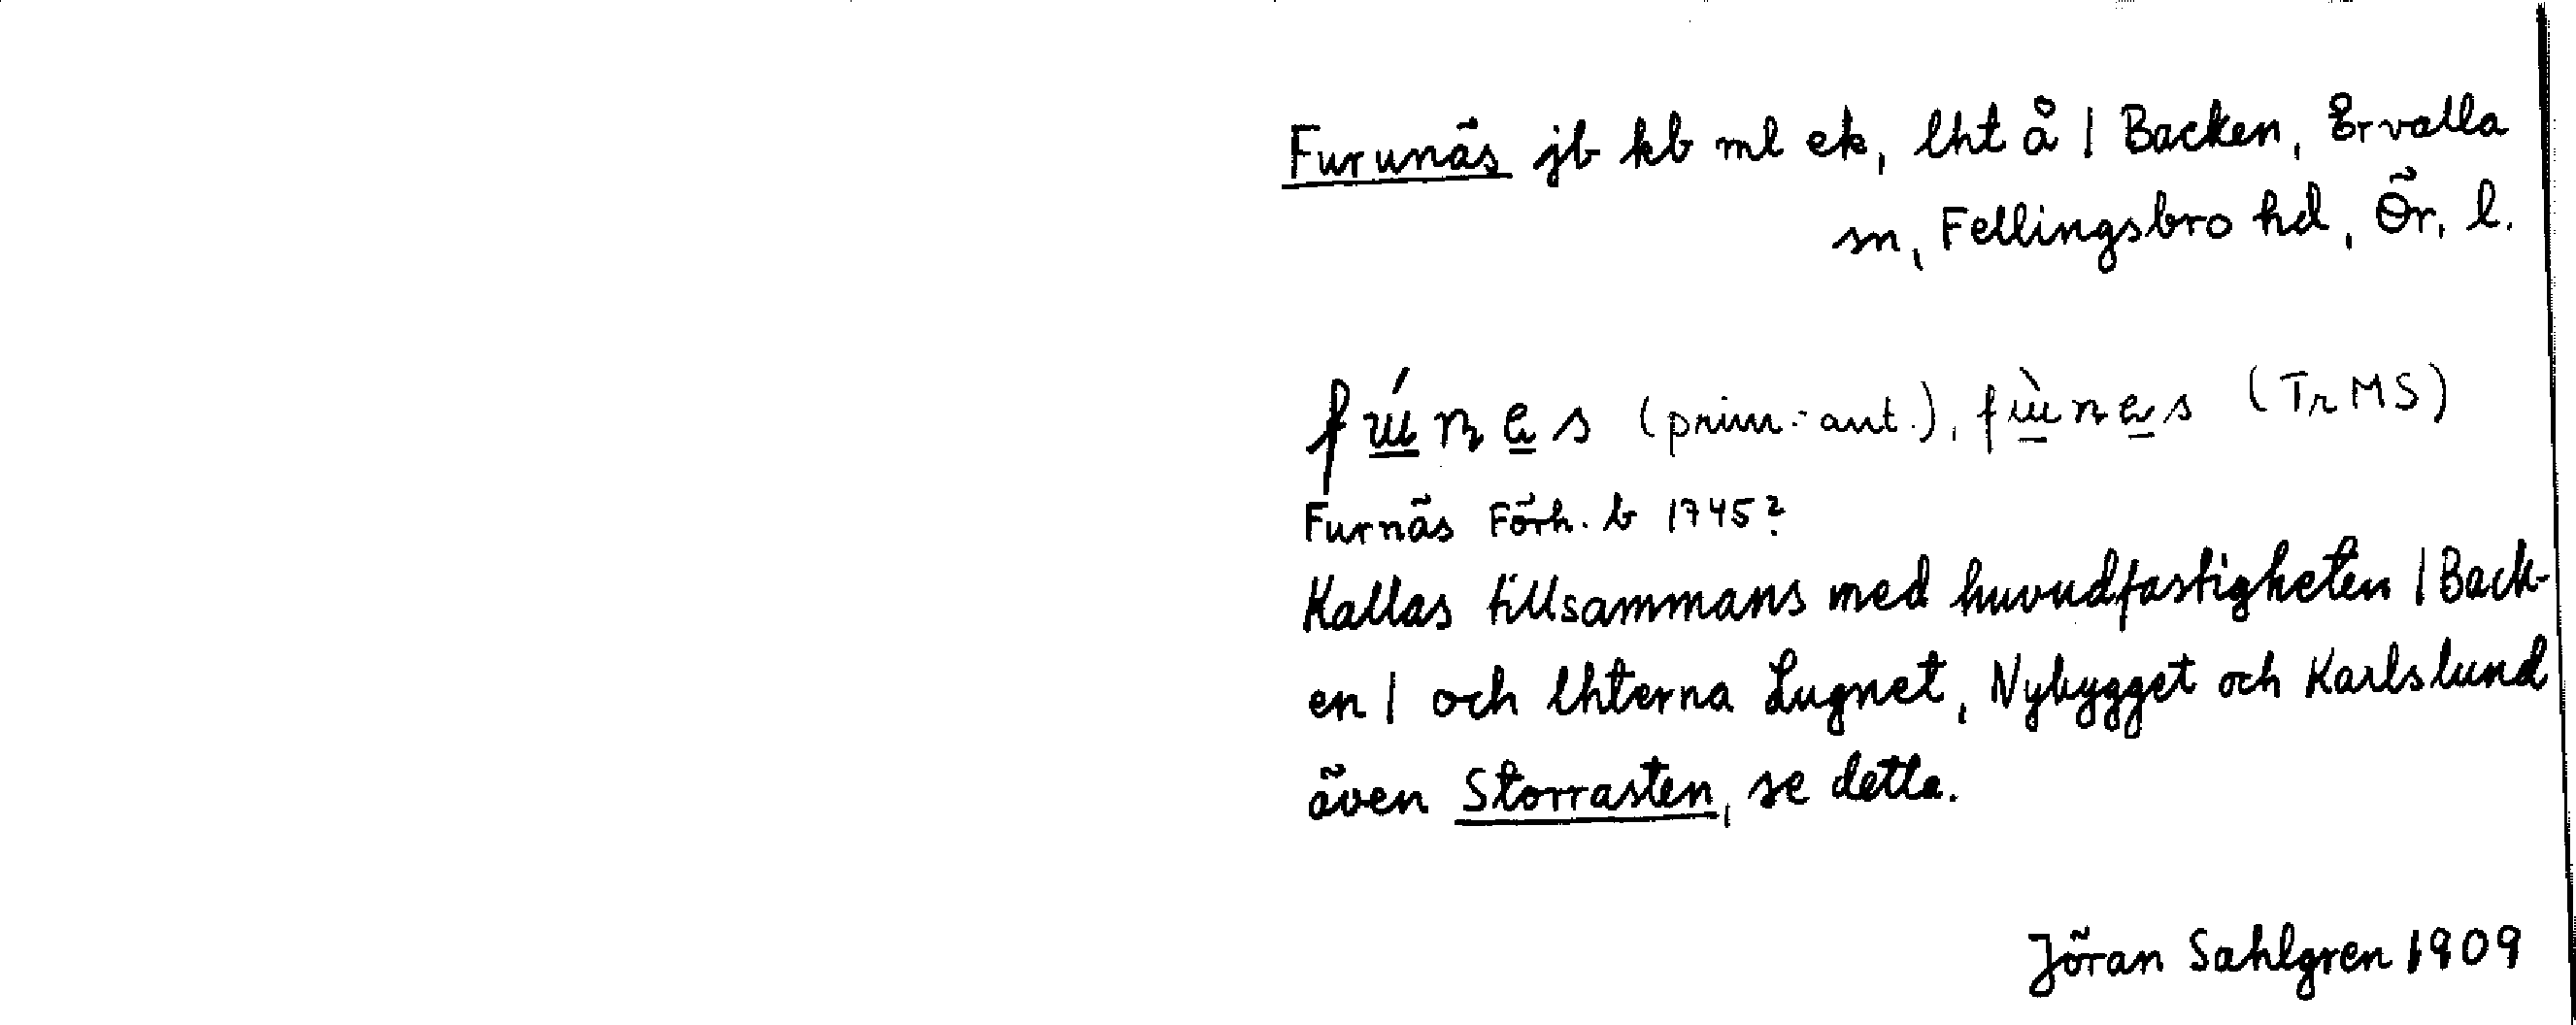 Furunäs jb kb ml ek, lht å 1 Backen, Ervalla
sn, Fellingsbro hd, Ör. l.
(prim.-ant.), (TrMS)
Furnäs Förh. b 1745?
Kallas tillsammans med huvudfastigheten 1 Back-
en 1 och lhterna Lugnet, Nybygget och Karlslund
även Storrasten, se detta.
Jöran Sahlgren 1909